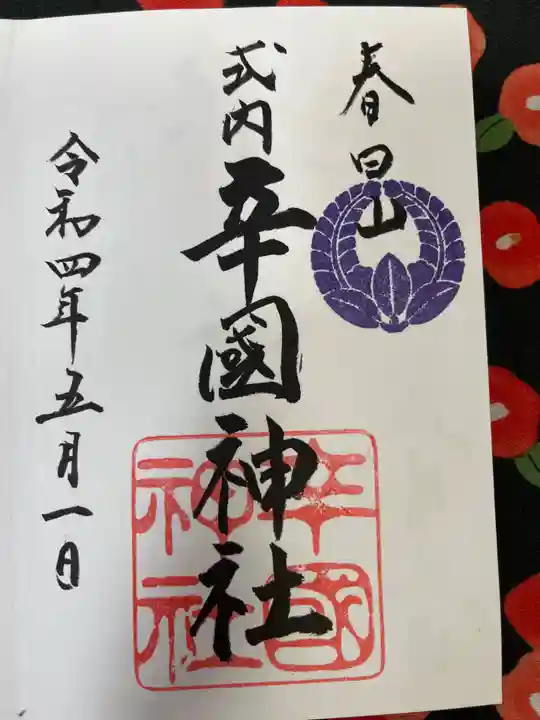 春日山
式内 辛國神社
辛國神社
令和四年五月一日